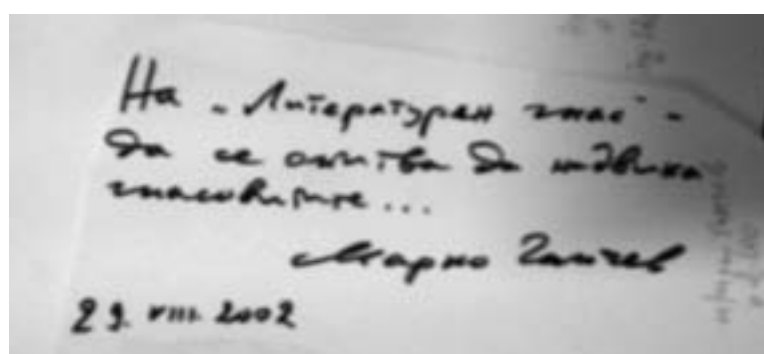 На „Литературен глас“ -
да се опитва да надвиква
гласовитите...
Марко Ганчев
29. VIII. 2002